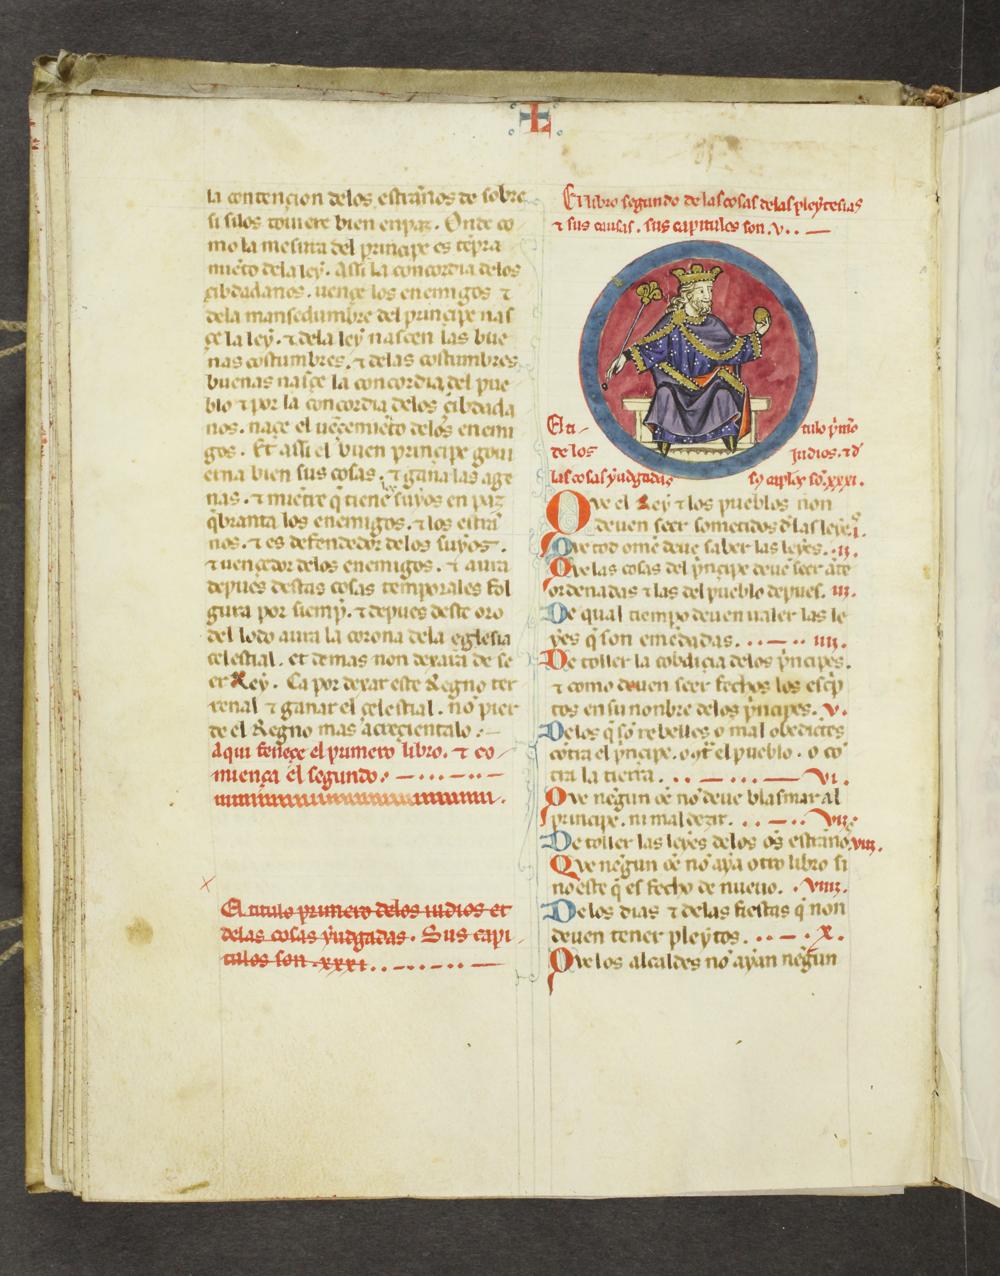 L
la contençion delos estrãnos de sobre
si silos touiere bien en paz. Onde co
mo la mesura del prinçipe es tẽpra
miẽto dela ley. Assi la concordia delos
çibdadanos. uençe los enemigos ⁊
dela mansedumbre del prinçipe nas
çe la ley. ⁊ dela ley nasçen las bue
nas costumbres. ⁊ delas costumbres
buenas nasçe la concordia del pue
blo ⁊ por la concordia delos çibdada
nos. naçe el uẽçemiẽto delos enemi
gos. Et assi el buen prinçipe goui
erna bien sus cosas. ⁊ gana las age
nas. ⁊ mientre q̃ tiene suyos en paz
q̃branta los enemigos. ⁊ los estrã
nos. ⁊ es defendedor delos suyos.
⁊ uençedor delos enemigos. ⁊ aura
depues destas cosas temporales fol
gura por siemp̃. ⁊ depues deste oro
del lodo aura la corona dela eglesia
çelestial. et demas non dexara de se
er Rey. Ca por dexar este Regno ter
renal ⁊ ganar el çelestial. no pier
de el Regno mas acreçientalo.
Aqui feneçe el primero libro. ⁊ co
miença el segundo.
El titulo primero delos iudios et
delas cosas yudgadas. Sus capi
tulos son .xxxi.
El libro segundo de las cosas delas pleytesias
⁊ sus causas. sus capitulos son .v.
El ti tulo p̃mo
de los Judios. ⁊ d̃
las cosas yudgadas sõ .xxxi.
Que el Rey ⁊ los pueblos non
deuen seer sometidos d̃ las leyes .i.
Que tod omẽ deue saber las leyes. .ii.
Que las cosas del p̃ncipe deuẽ seer ãte
ordenadas ⁊ las del pueblo depues. iii.
De qual tiempo deuen ualer las le
yes q̃ son emẽdadas. iiii.
De toller la cobdiçia delos p̃ncipes.
⁊ como deuen seer fechos los esc̃p
tos en su nonbre delos p̃ncipes. v.
Delos q̃ sõ rebelles o mal obediẽtes
cõtra el p̃ncipe. o cõt̃ el pueblo. o cõ
tra la tierra. vi.
Que negun oẽ no deue blasmar al
principe. ni mal dezir. vii.
De toller las leyes delos oẽs estrãnos. viii.
Que negun oẽ no aya otro libro si
no este q̃ es fecho de nueuo. .viiii.
Delos dias ⁊ delas fiestas q̃ non
deuen tener pleytos. .x.
Que los alcaldes no ayan negun